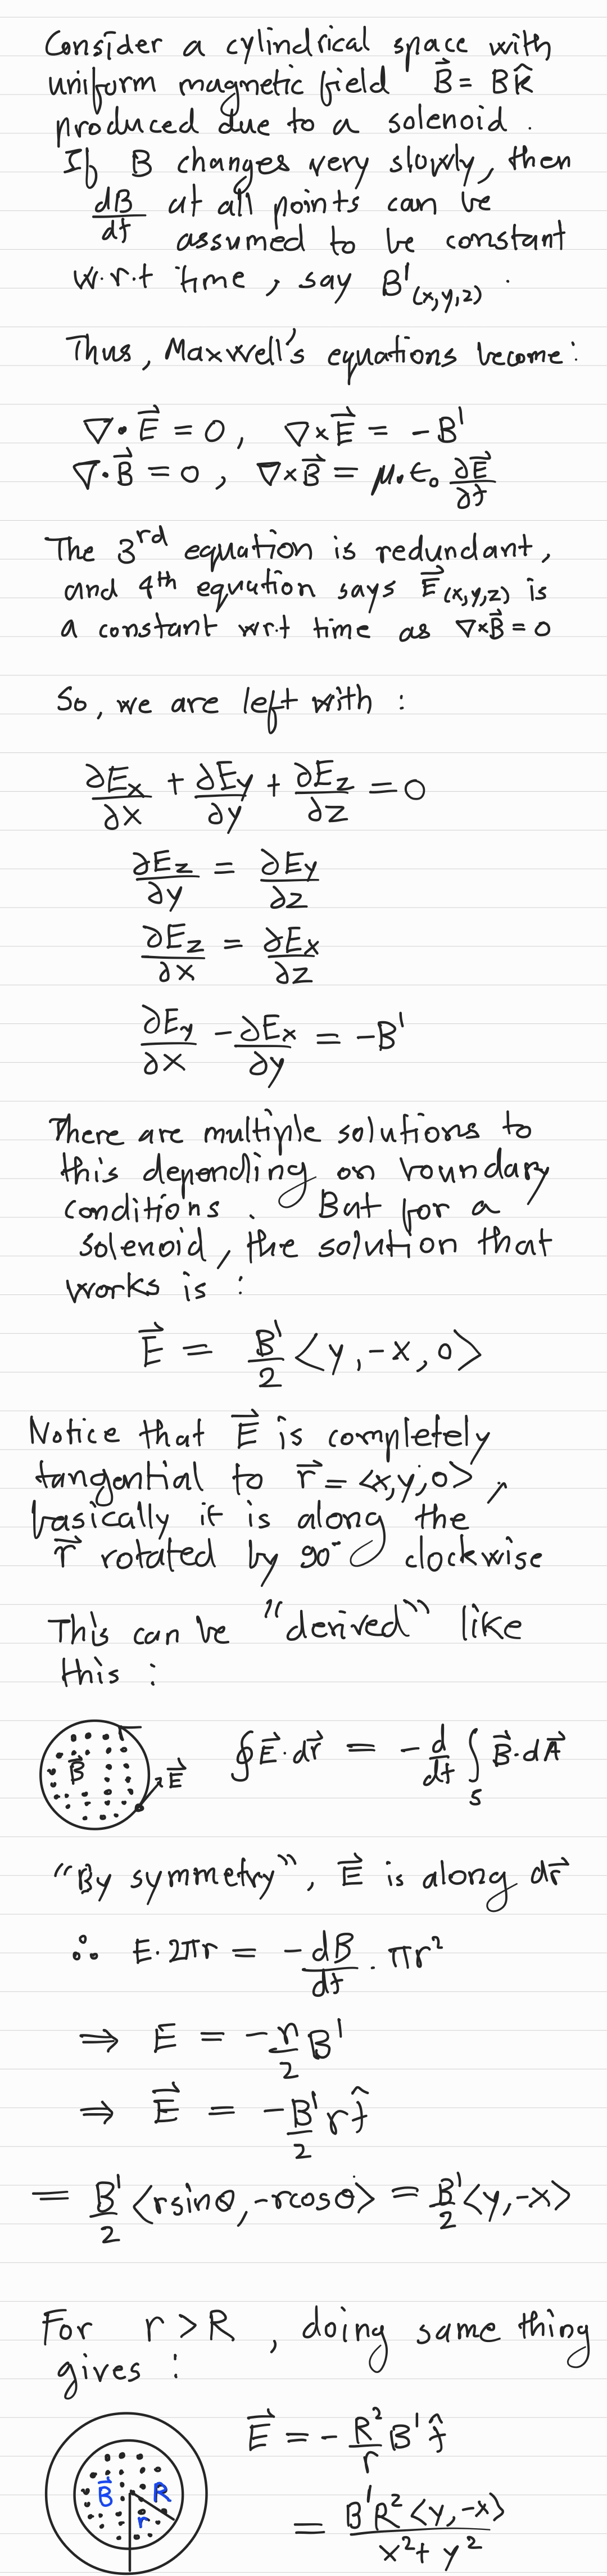 Consider a cylindrical space with
uniform magnetic field B⃗ = Bk̂
produced due to a solenoid.
If B changes very slowly, then
dB/dt at all points can be
assumed to be constant
w.r.t time, say B'(x,y,z).
Thus, Maxwell's equations become:
∇·E⃗ = 0, ∇×E⃗ = -B'
∇·B⃗ = 0, ∇×B⃗ = μ₀ε₀ ∂E⃗/∂t
The 3rd equation is redundant,
and 4th equation says E⃗(x,y,z) is
a constant wr.t time as ∇×B⃗ = 0
So, we are left with :
∂Ex/∂x + ∂Ey/∂y + ∂Ez/∂z = 0
∂Ez/∂y = ∂Ey/∂z
∂Ez/∂x = ∂Ex/∂z
∂Ey/∂x - ∂Ex/∂y = -B'
There are multiple solutions to
this depending on boundary
conditions. But for a
solenoid, the solution that
works is :
E⃗ = B'/2 <y, -x, 0>
Notice that E⃗ is completely
tangential to r⃗ = <x, y, 0>,
basically it is along the
r⃗ rotated by 90° clockwise
This can be "derived" like
this :
B⃗ E⃗ ∮E⃗·dr⃗ = -d/dt ∫S B⃗·dA⃗
"By symmetry", E⃗ is along dr⃗
∴ E·2πr = -dB/dt · πr²
⇒ E = -r/2 B'
⇒ E⃗ = -B'/2 r t̂
= B'/2 <rsinθ, -rcosθ> = B'/2 <y, -x>
For r > R, doing same thing
gives :
E⃗ = - R²/r B' t̂
B⃗ R r
= B'R² <y, -x> / x² + y²